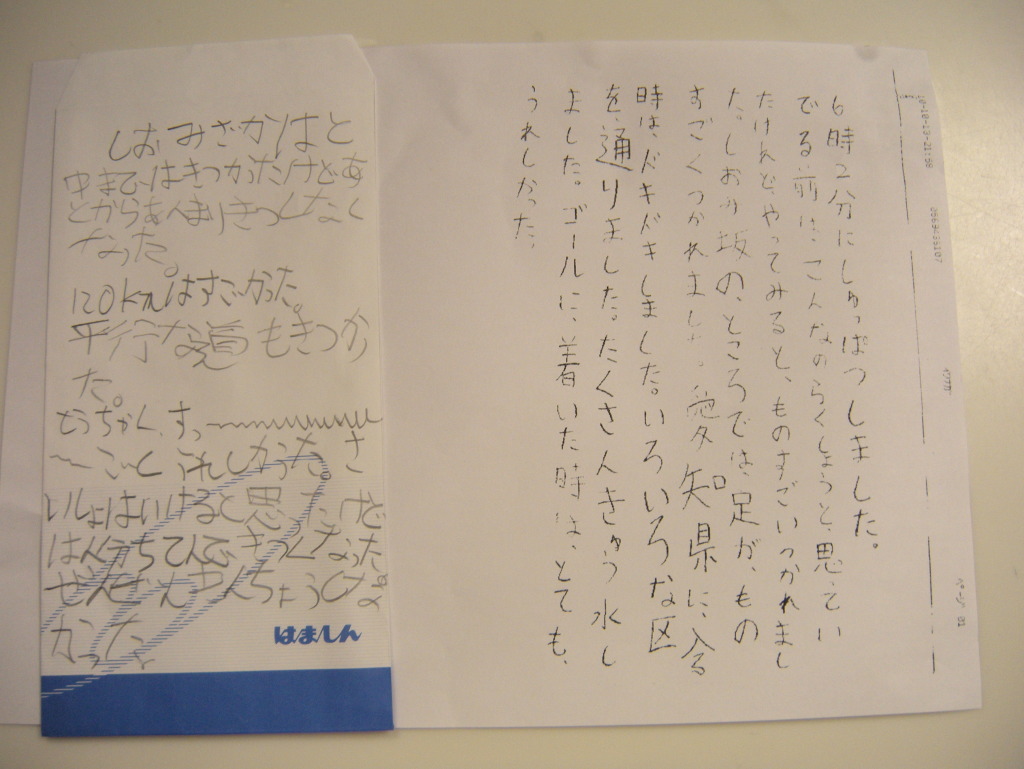 しおみざかはと
中まではきつかったけどあ
とからあんまりきつくなく
なった。
120kmはすごかった。
平行な道もきつかっ
た。
どうちゃく、すっ〜
〜ごいうれしかった。さ
いしょはいけると思ったけど
はん分ちてんできつくなった。
ぜんぜんかんちょうしなな
かった。
はましん
6時2分にしゅっぱつしました。
でる前は、こんなのらくしょうと、思ってい
たけれど、やってみると、ものすごいつかれまし
た。しおみ坂の、ところでは、足が、もの
すごくつかれました。愛知県に、入る
時は、ドキドキしました。いろいろな区
を、通りました。たくさんきゅう水し
ました。ゴールに、着いた時は、とても、
うれしかった。
ページ 01